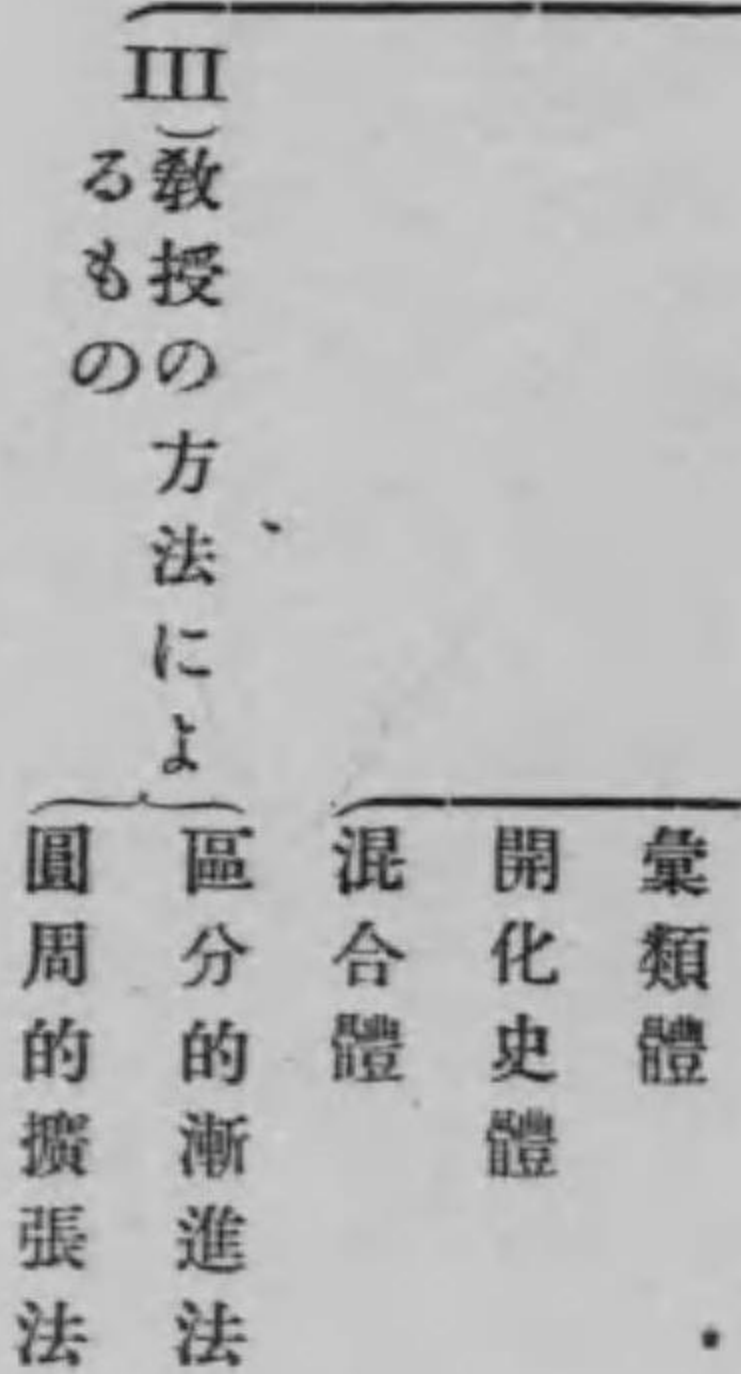 彙類體
開化史體
混合體
III)教授の方法によ
るもの
區分的漸進法
圓周的擴張法